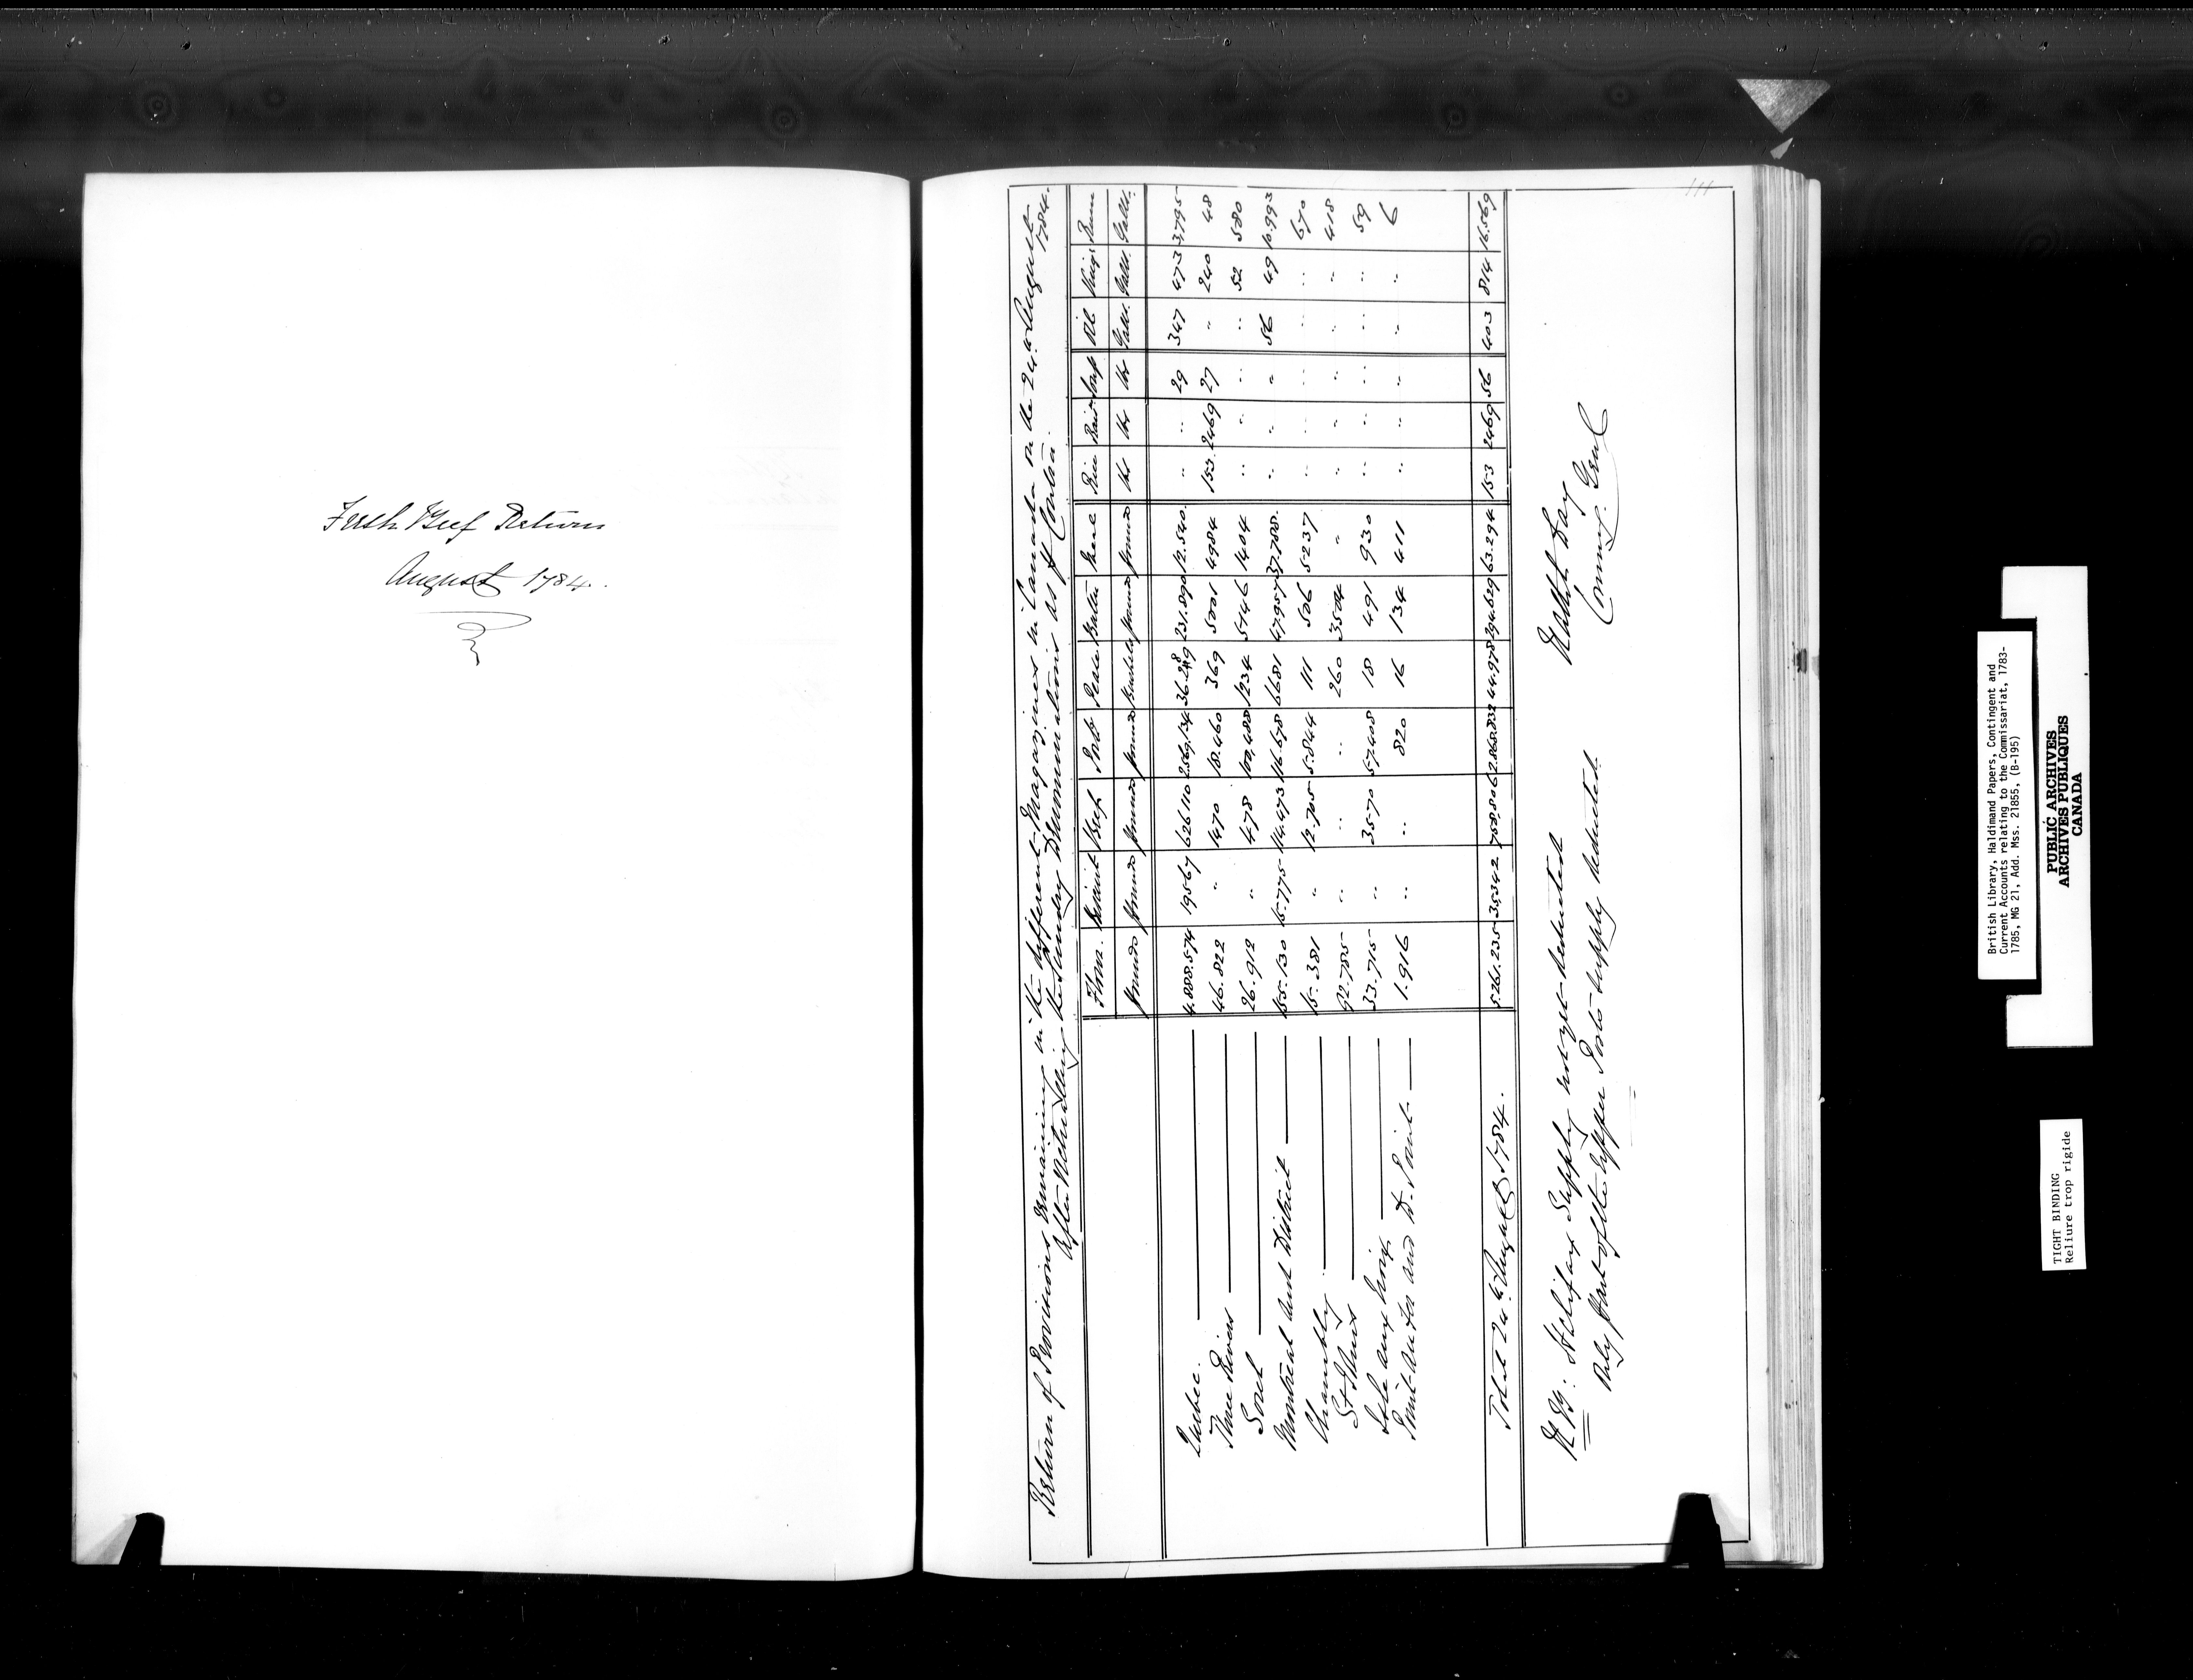 Fresh Beef Return
August 1784.
Return of Provisions remaining in the different Magazines in Canada on the 24th August 1784.
after Victualling the Sundry Denominations as p Contra.
Flour. Biscuit Beef Pork Pease Butter Meal Rice Oil Vinigr Rum
Pounds Pounds Pounds Pounds Bushells Pounds Pounds Galls. Galls. Galls.
Quebec. 4.888.574 19567 626110 2.569.134 36.289 231.890 12.540. " " 29 347 473 3,795
Three Rivers 46.822 " 1470 18.460 369 5001 4984 153. 2469 27 " 240 48
Sorel 26.912 " 478 100,488 1234 5146 1404 " " " " 52 580
Montreal and District 155.130 15.775 114.473 116.678 6681 47.957 37.788. " " " 56 49 10.993
Chambly. 15.381 " 12.705 5.844 111 506 5237 " " " " " 670
St Johns 92.785 " " " 260 3504 " " " " " " 418
Isle aux Noix 33.715 " 3570 57408 18 491 930 " " " " " 59
Point au Fer and D. Point. 1.916 " " 820 16 134 411 " " " " " 6
Total 24th August 1784. 5.261.235 35,342 758,806 2.868.832 44.978 294.629 63.294 153 2469 56 403 814 16.569
NB: Halifax Supply not yet deducted
Only part of the Upper Posts supply deducted.
Nathl. Day
Commiss. Genl
111
British Library, Haldimand Papers, Contingent and
Current Accounts relating to the Commissariat, 1783-
1785, MG 21, Add. Mss. 21855, (B-195)
PUBLIC ARCHIVES
ARCHIVES PUBLIQUES
CANADA
TIGHT BINDING
Reliure trop rigide